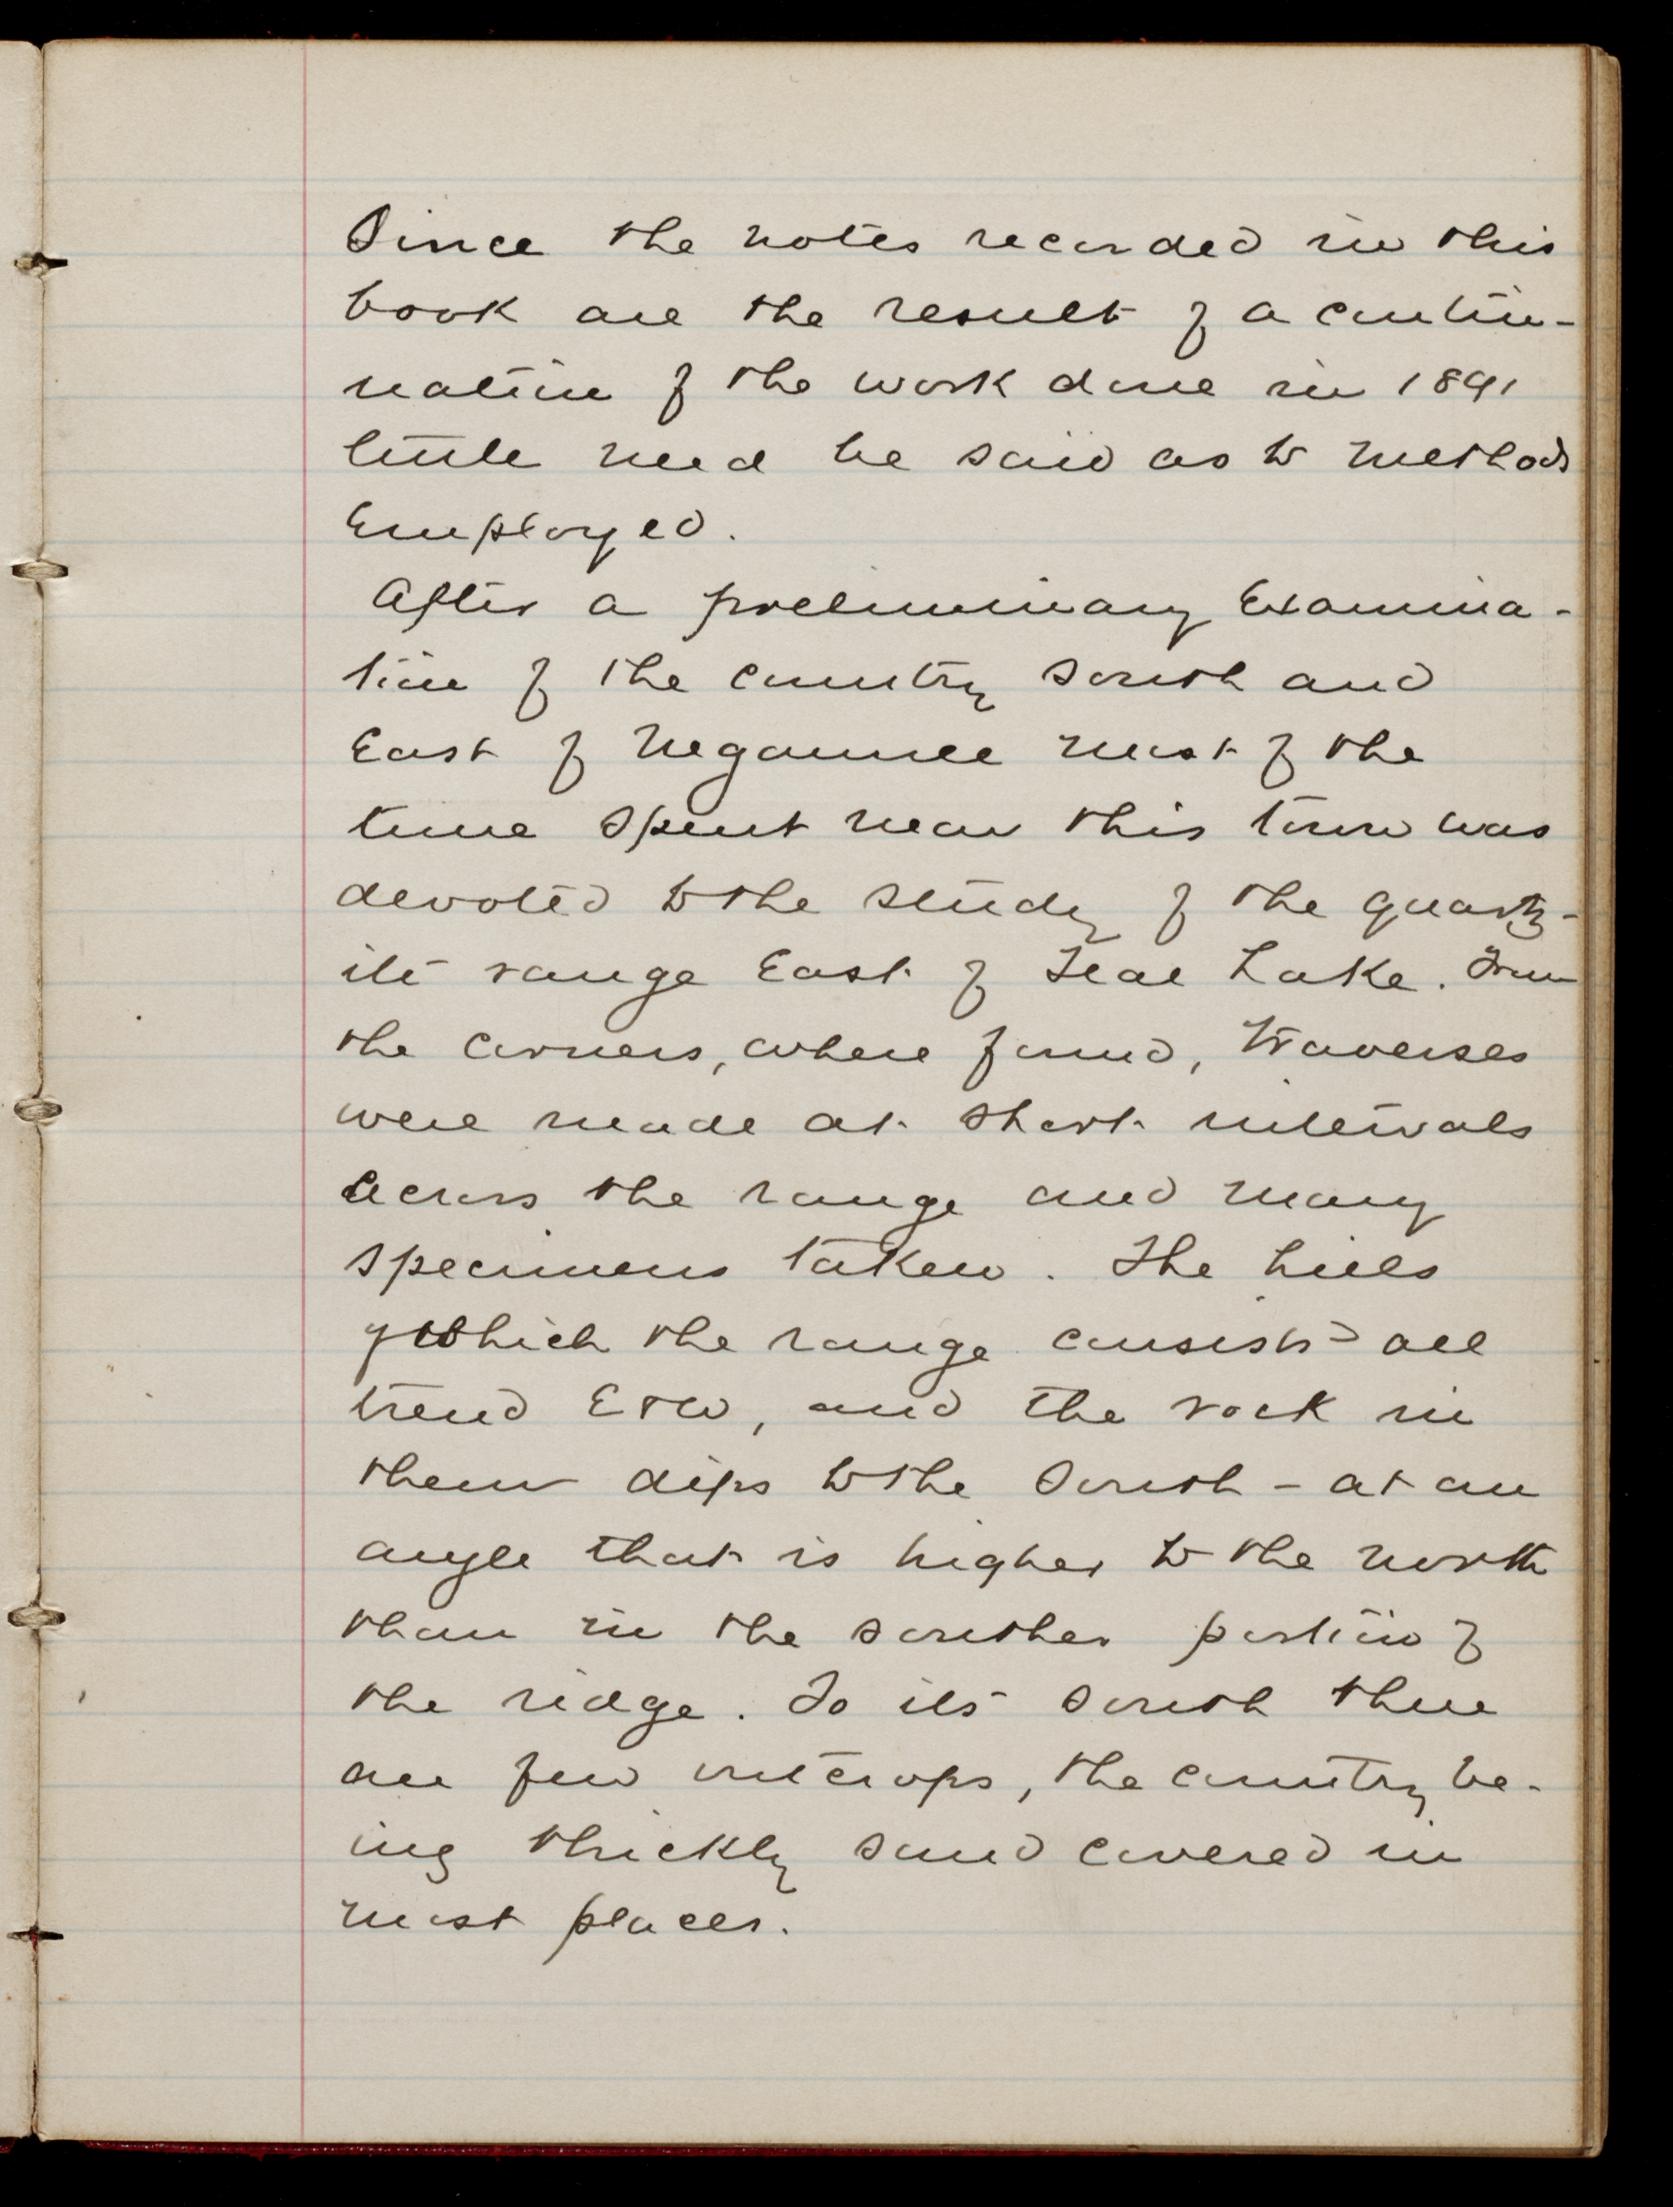 Since the notes recorded in this
book are the result of a contin-
uation of the work done in 1891
little need be said as to methods
employed.
After a preliminary examina-
tion of the country south and
East of Negaunee most of the
time spent near this town was
devoted to the study of the quartz-
ite range East of Teal Lake. From
the corners, where found, traverses
were made at short intervals
across the range and many
specimens taken. The hills
of which the range consists all
trend E & W, and the rock in
them dips to the South - at an
angle that is higher to the north
than in the souther portion of
the ridge. To its south there
are few outcrops, the country be-
ing thickly sand covered in
most places.